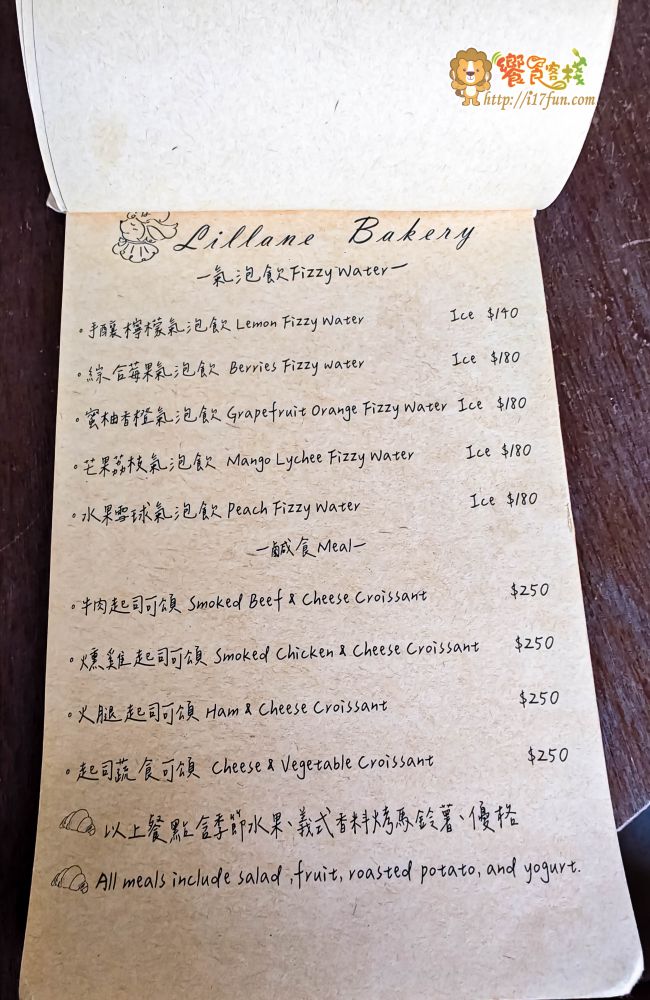 饗食客棧
http://i17fun.com
Lillane Bakery
—氣泡飲Fizzy Water—
。手釀檸檬氣泡飲 Lemon Fizzy Water Ice $140
。綜合莓果氣泡飲 Berries Fizzy water Ice $180
。蜜柚香橙氣泡飲 Grapefruit Orange Fizzy Water Ice $180
。芒果荔枝氣泡飲 Mango Lychee Fizzy Water Ice $180
。水果雪球氣泡飲 Peach Fizzy Water Ice $180
—鹹食Meal—
。牛肉起司可頌 Smoked Beef & Cheese Croissant $250
。燻雞起司可頌 Smoked Chicken & Cheese Croissant $250
。火腿起司可頌 Ham & Cheese Croissant $250
。起司蔬食可頌 Cheese & Vegetable Croissant $250
以上餐點含季節水果、義式香料烤馬鈴薯、優格
All meals include salad ,fruit, roasted potato, and yogurt.